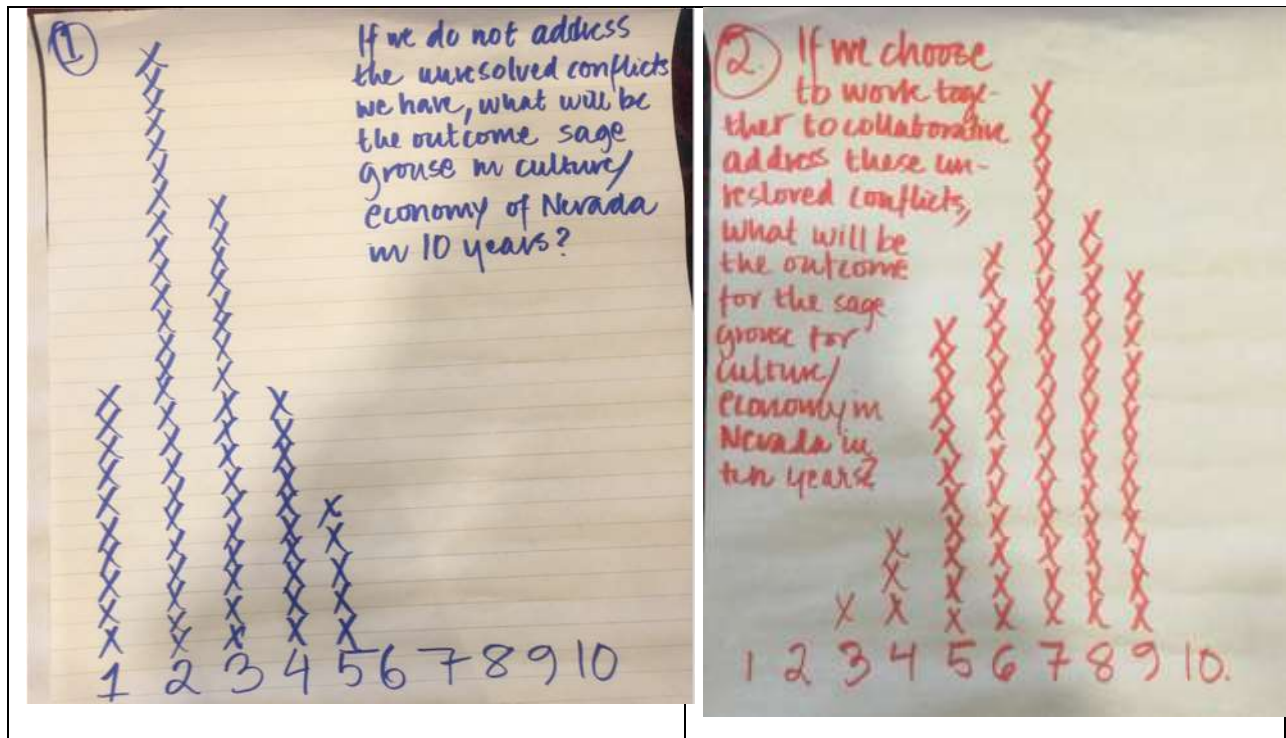 1
If we do not address
the unresolved conflicts
we have, what will be
the outcome sage
grouse in culture/
economy of Nevada
in 10 years?
1 2 3 4 5 6 7 8 9 10
2. If we choose
to work toge-
ther to collaborative
address these un-
restored conflicts,
what will be
the outcome
for the sage
grouse for
culture/
economy in
Nevada in
ten years?
1 2 3 4 5 6 7 8 9 10.